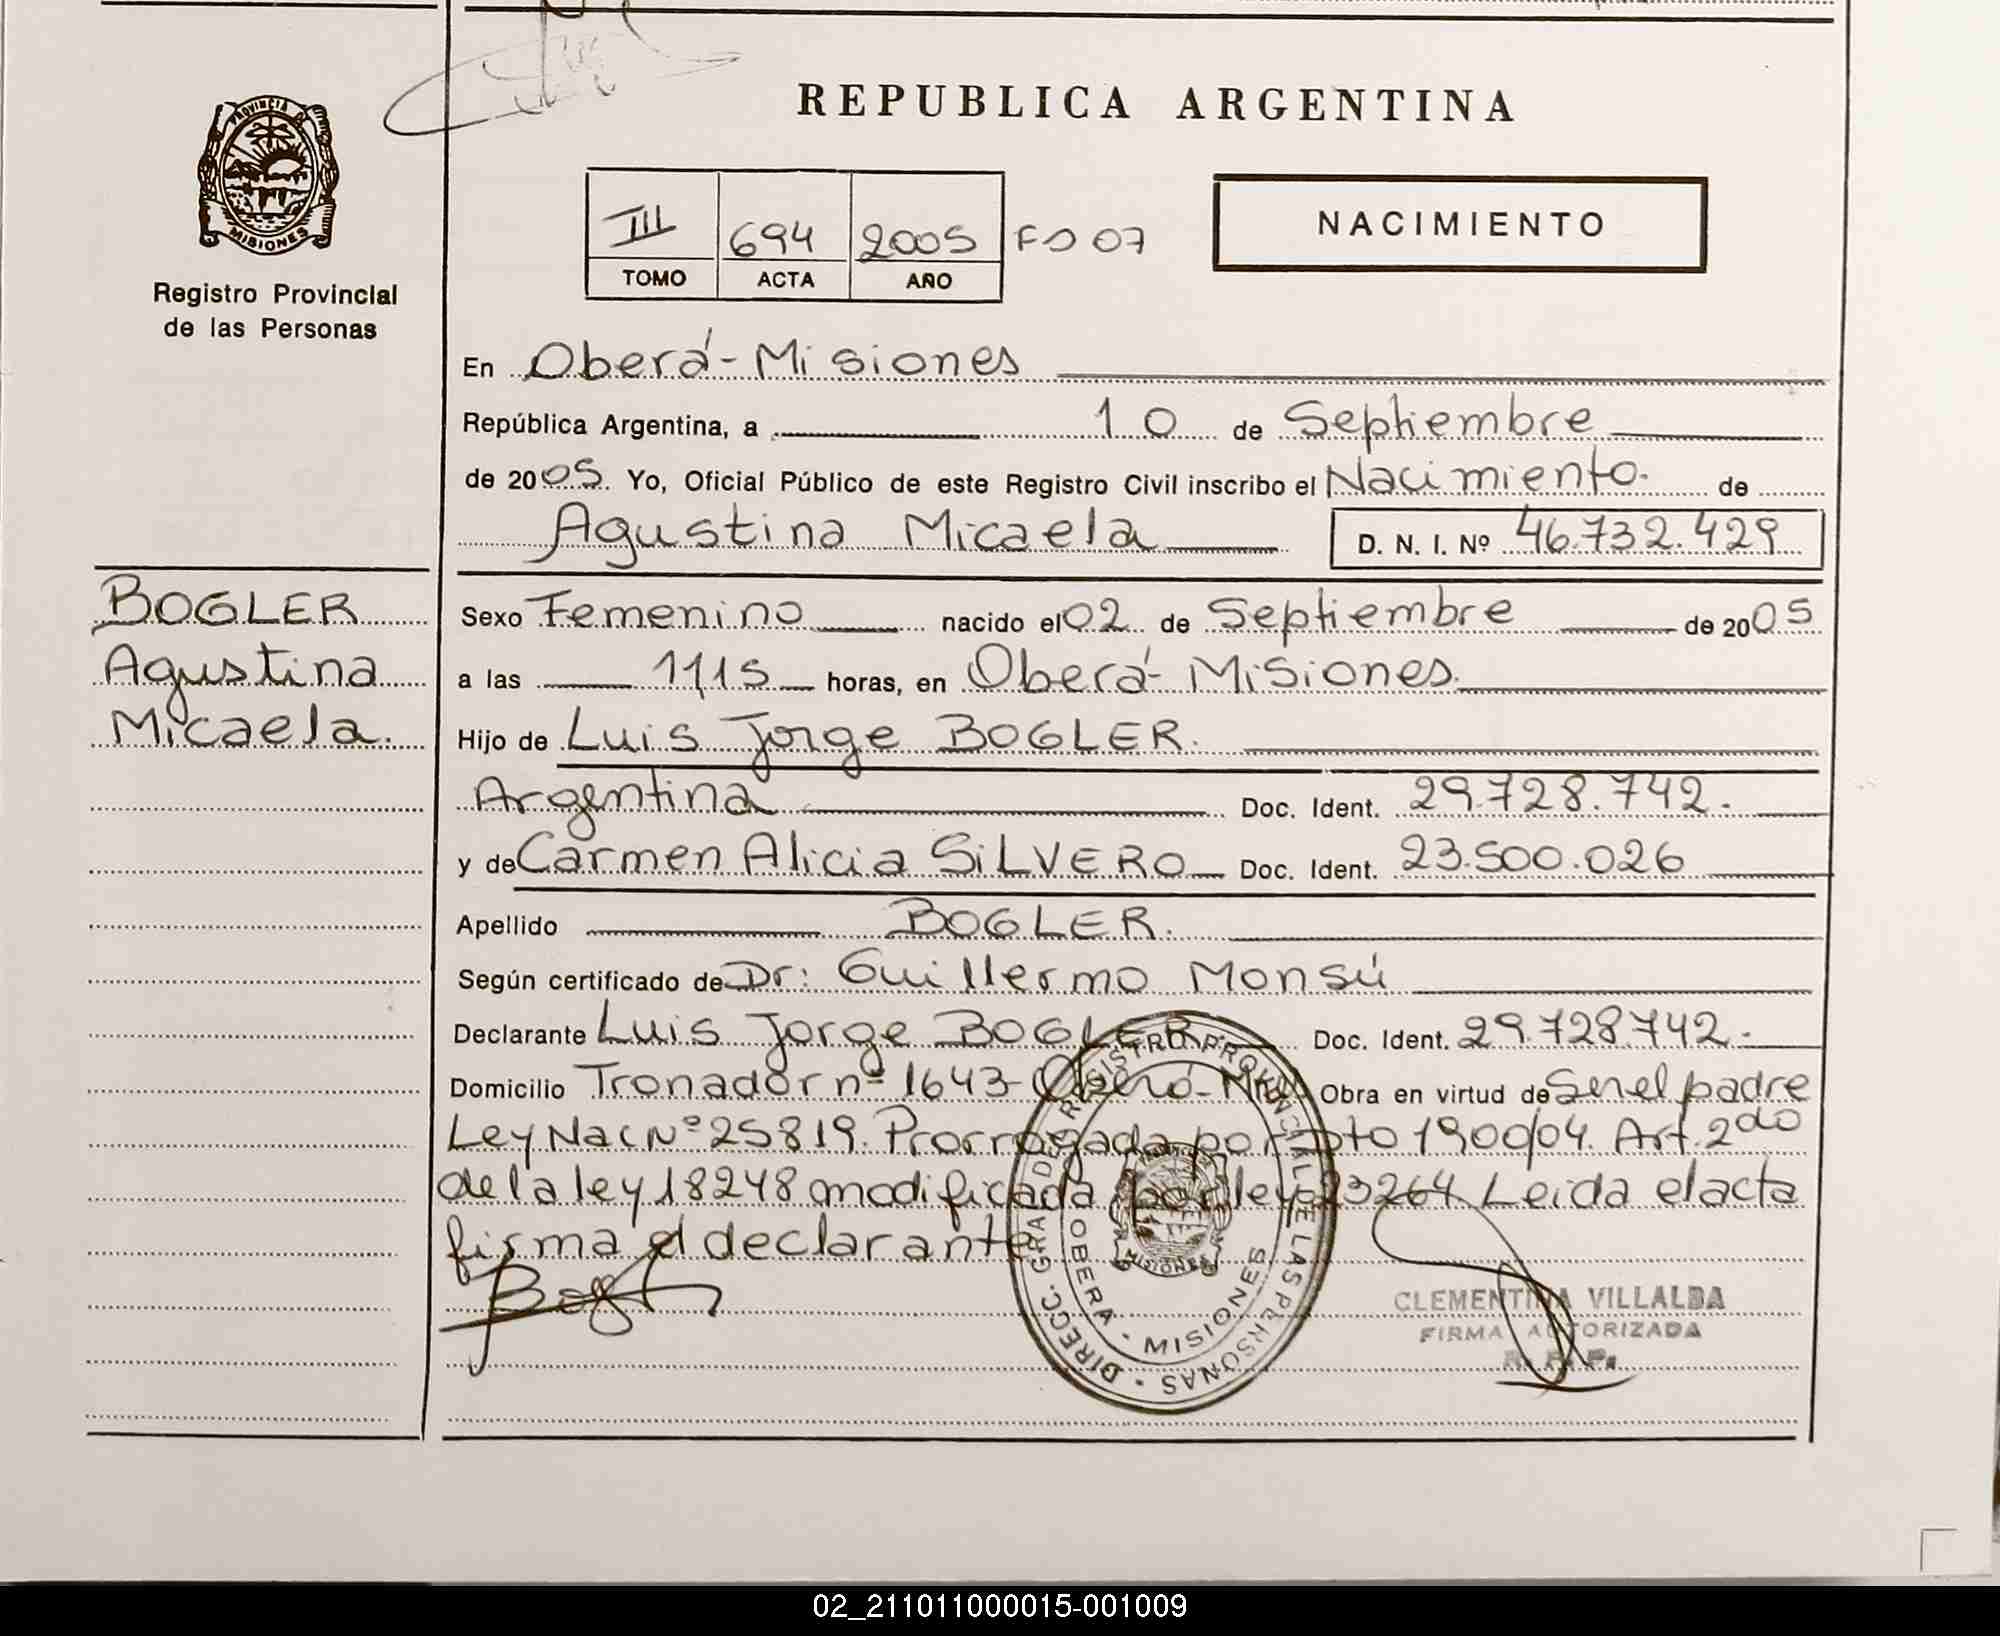 REPUBLICA ARGENTINA
PROVINCIA DE
MISIONES
Registro Provincial
de las Personas
III 694 2005 Fº 07
TOMO ACTA AÑO
NACIMIENTO
En Oberá - Misiones
República Argentina, a 10 de Septiembre
de 2005. Yo, Oficial Público de este Registro Civil inscribo el Nacimiento. de
Agustina Micaela D. N. I. Nº 46.732.429
BOGLER
Agustina
Micaela.
Sexo Femenino nacido el 02 de Septiembre de 2005
a las 11,15 horas, en Oberá - Misiones.
Hijo de Luis Jorge BOGLER.
Argentina Doc. Ident. 29.728.742.-
y de Carmen Alicia SILVERO Doc. Ident. 23.500.026
Apellido BOGLER.
Según certificado de Dr: Guillermo Monsú
Declarante Luis Jorge BOGLER Doc. Ident. 29.728.742.-
Domicilio Tronador nº 1643 - Oberá - Mnes Obra en virtud de Ser el padre
Ley Nac Nº 25819. Prorrogada por Dto 1900/04. Art. 2do
de la ley 18248 modificada por ley 23264. Leida el acta
firma el declarante
DIRECC. GRAL. DE REGISTRO PROVINCIAL DE LAS PERSONAS
OBERA - MISIONES
MISIONES
CLEMENTINA VILLALBA
FIRMA AUTORIZADA
R. P. P.
02_211011000015-001009